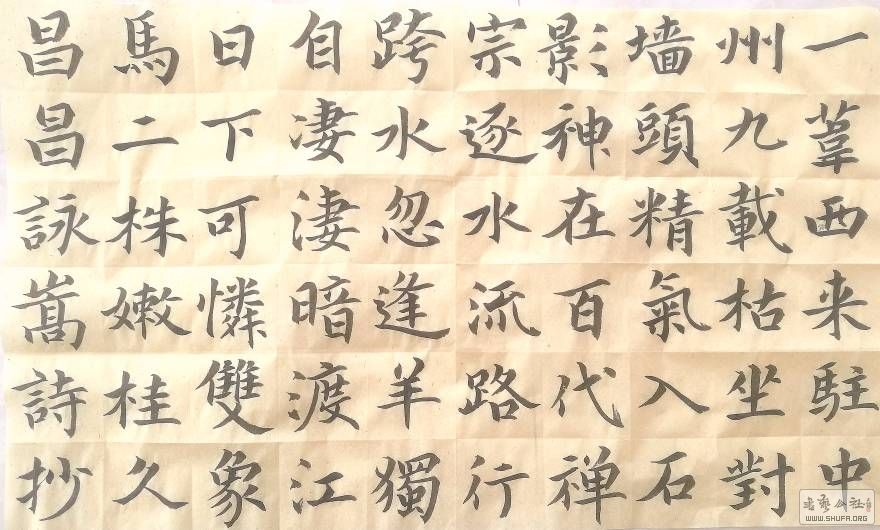 一葦西来駐中
州九載枯坐對
墙頭精氣入石
影神在百代禅
宗逐水流路行
跨水忽逢羊獨
自凄淒暗渡江
日下可憐雙象
馬二株嫩桂久
昌昌詠嵩詩抄
WWW.SHUFA.ORG